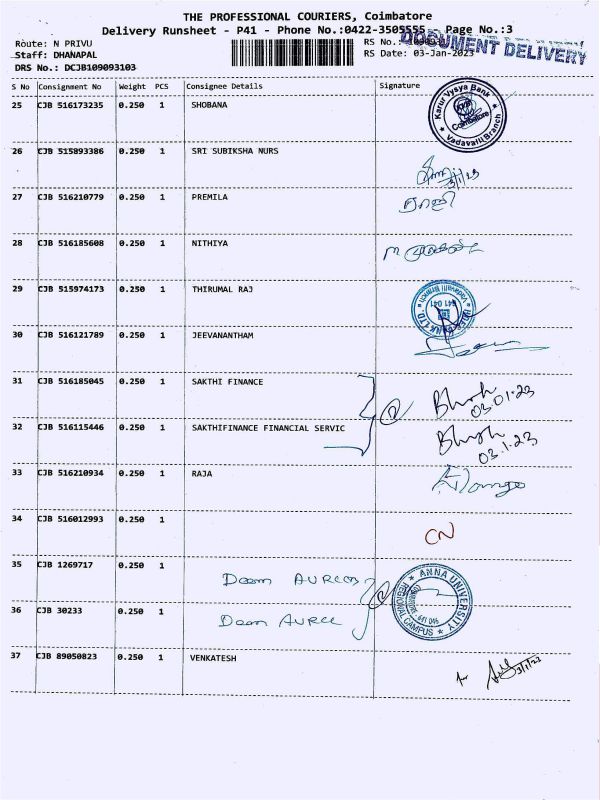 THE PROFESSIONAL COURIERS, Coimbatore
Delivery Runsheet - P41 - Phone No.:0422-3505555 Page No.:3
Route: N PRIVU
RS No.:
DOCUMENT DELIVERY
Staff: DHANAPAL
RS Date: 03-Jan-2023
DRS No.: DCJB109093103
S No Consignment No Weight PCS Consignee Details Signature
25 CJB 516173235 0.250 1 SHOBANA
Karur Vysya Bank
Coimbatore
Vadavalli Branch
26 CJB 515893386 0.250 1 SRI SUBIKSHA NURS
3/1/23
27 CJB 516210779 0.250 1 PREMILA
28 CJB 516185608 0.250 1 NITHIYA
29 CJB 515974173 0.250 1 THIRUMAL RAJ
Vadavalli Branch
641 041
BANK LTD
30 CJB 516121789 0.250 1 JEEVANANTHAM
31 CJB 516185045 0.250 1 SAKTHI FINANCE
03.01.23
32 CJB 516115446 0.250 1 SAKTHIFINANCE FINANCIAL SERVIC
03.1.23
33 CJB 516210934 0.250 1 RAJA
34 CJB 516012993 0.250 1
CN
35 CJB 1269717 0.250 1 Deam
ANNA UNIVERSITY
REGIONAL CAMPUS
641 046
36 CJB 30233 0.250 1 Deam
37 CJB 89050823 0.250 1 VENKATESH
3/1/23